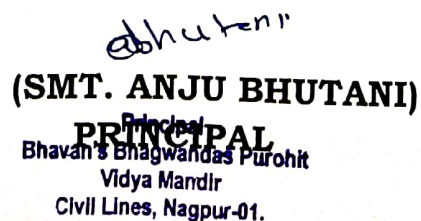 abhutani
(SMT. ANJU BHUTANI)
PRINCIPAL
Principal
Bhavan's Bhagwandas Purohit
Vidya Mandir
Civil Lines, Nagpur-01.